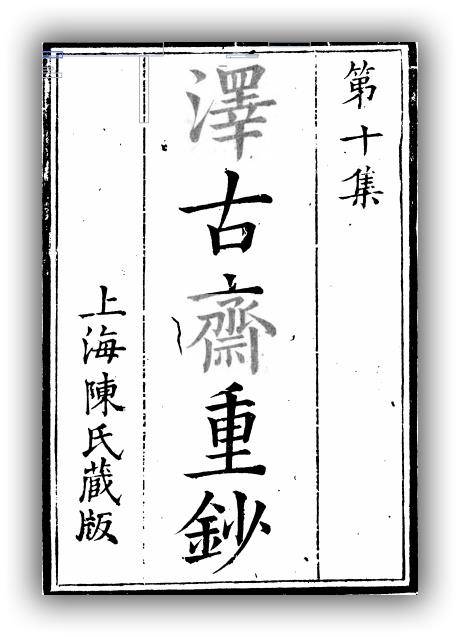 第十集
澤古齋重鈔
上海陳氏藏版